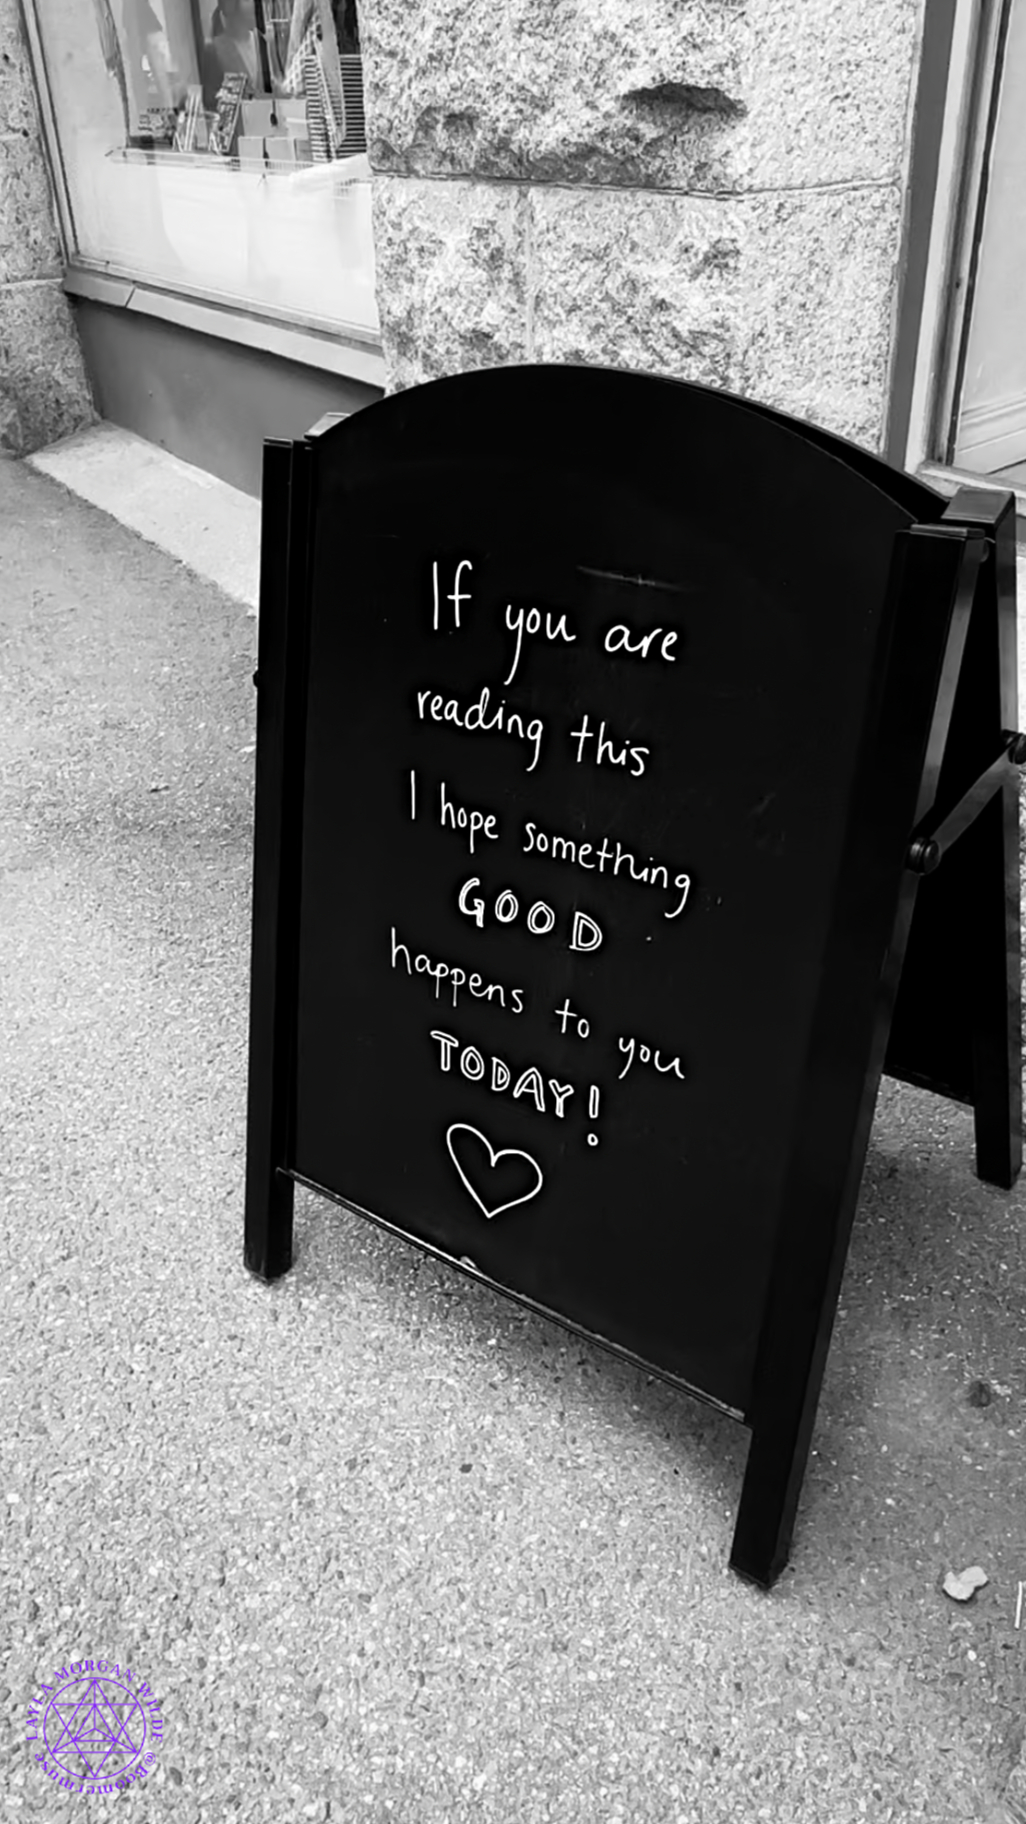 If you are
reading this
I hope something
GOOD
happens to you
TODAY!
LAYLA MORGAN WILDE
@Boomermuse